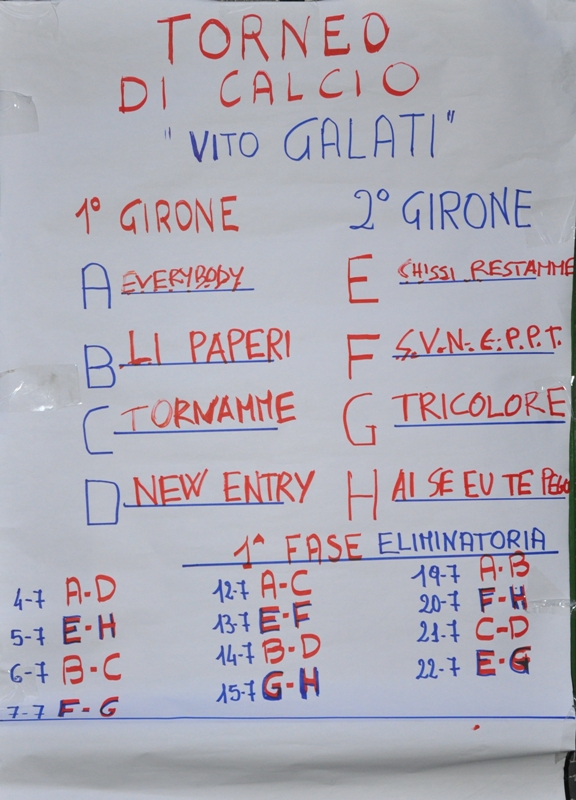 TORNEO
DI CALCIO
"VITO GALATI"
1° GIRONE
A EVERYBODY
B LI PAPERI
C TORNAMME
D NEW ENTRY
2° GIRONE
E CHISSI RESTAMME
F S.V.N.E.P.P.T.
G TRICOLORE
H AI SE EU TE PEGO
1ª FASE ELIMINATORIA
4-7 A-D
5-7 E-H
6-7 B-C
7-7 F-G
12-7 A-C
13-7 E-F
14-7 B-D
15-7 G-H
19-7 A-B
20-7 F-H
21-7 C-D
22-7 E-G